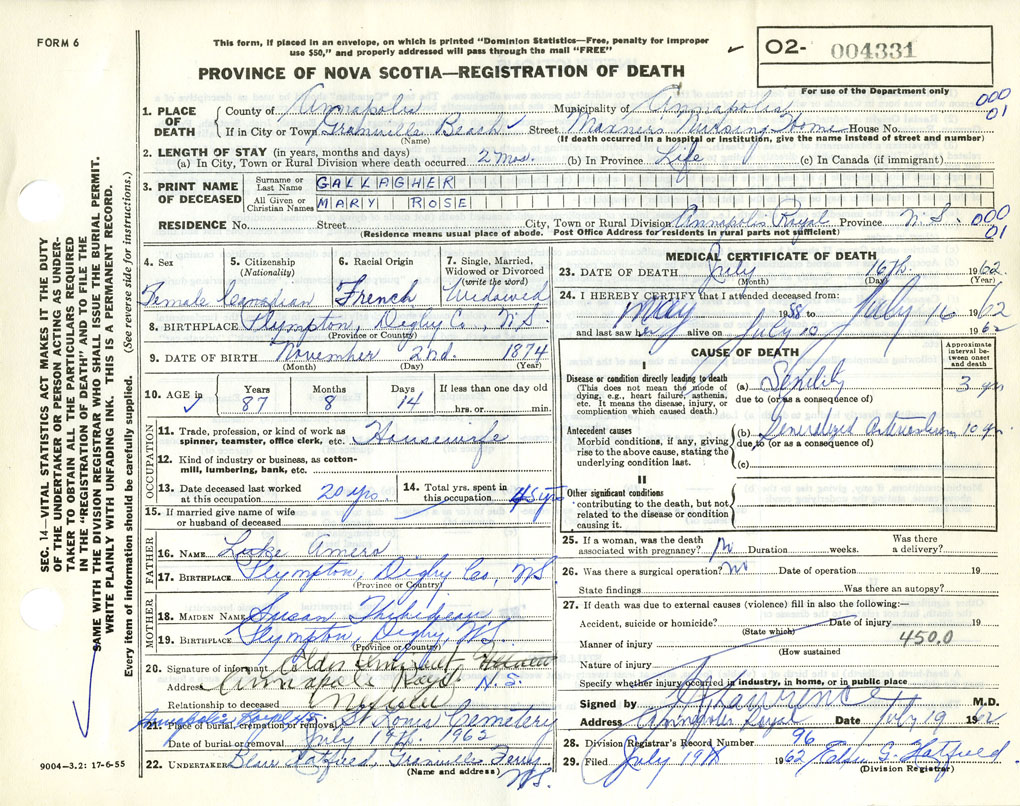 FORM 6
This form, if placed in an envelope, on which is printed "Dominion Statistics—Free, penalty for improper
use $50," and properly addressed will pass through the mail "FREE"
O2- 004331
PROVINCE OF NOVA SCOTIA—REGISTRATION OF DEATH
For use of the Department only
1. PLACE OF DEATH
County of Annapolis Municipality of Annapolis 000 01
If in City or Town Granville Beach Street Mariners Nursing Home House No.
(Name) (If death occurred in a hospital or institution, give the name instead of street and number)
2. LENGTH OF STAY (in years, months and days)
(a) In City, Town or Rural Division where death occurred 2 mos. (b) In Province Life (c) In Canada (if immigrant)
3. PRINT NAME OF DECEASED
Surname or Last Name GALLAGHER
All Given or Christian Names MARY ROSE
RESIDENCE No. Street City, Town or Rural Division Annapolis Royal Province N.S. 000 01
(Residence means usual place of abode. Post Office Address for residents in rural parts not sufficient)
4. Sex Female
5. Citizenship (Nationality) Canadian
6. Racial Origin French
7. Single, Married, Widowed or Divorced (write the word) Widowed
8. BIRTHPLACE Plympton, Digby Co., N.S.
(Province or Country)
9. DATE OF BIRTH November 2nd. 1874
(Month) (Day) (Year)
10. AGE Years 87 Months 8 Days 14 If less than one day old hrs. or min.
OCCUPATION
11. Trade, profession, or kind of work as spinner, teamster, office clerk, etc. Housewife
12. Kind of industry or business, as cotton-mill, lumbering, bank, etc.
13. Date deceased last worked at this occupation 20 yrs
14. Total yrs. spent in this occupation 45 yrs
15. If married give name of wife or husband of deceased
FATHER
16. NAME Luke Amero
17. BIRTHPLACE Plympton, Digby Co, N.S.
(Province or Country)
MOTHER
18. MAIDEN NAME Susan Thibideau
19. BIRTHPLACE Plympton, Digby, N.S.
(Province or Country)
20. Signature of informant
Address Annapolis Royal N.S.
Relationship to deceased
21. Place of burial, cremation or removal St Louis Cemetery
Date of burial or removal July 19th. 1962
22. UNDERTAKER Blair Hatfield, Granville Ferry
(Name and address) N.S.
MEDICAL CERTIFICATE OF DEATH
23. DATE OF DEATH July 16th. 1962.
(Month) (Day) (Year)
24. I HEREBY CERTIFY that I attended deceased from:
May 1958 to July 16 1962
and last saw her alive on July 10 1962
CAUSE OF DEATH
Approximate interval between onset and death
I
Disease or condition directly leading to death
(This does not mean the mode of
dying, e.g., heart failure, asthenia,
etc. It means the disease, injury, or
complication which caused death.)
(a) Senility 3 yrs
due to (or as a consequence of)
Antecedent causes
Morbid conditions, if any, giving
rise to the above cause, stating the
underlying condition last.
(b) Generalized 10 yrs
due to (or as a consequence of)
(c)
II
Other significant conditions
contributing to the death, but not
related to the disease or condition
causing it.
25. If a woman, was the death associated with pregnancy? No Duration weeks. Was there a delivery?
26. Was there a surgical operation? No Date of operation 19
State findings Was there an autopsy?
27. If death was due to external causes (violence) fill in also the following:—
Accident, suicide or homicide? Date of injury 19
(State which)
Manner of injury 450.0
(How sustained
Nature of injury
Specify whether injury occurred in industry, in home, or in public place
Signed by Lawrence M.D.
Address Annapolis Royal Date July 19 1962
28. Division Registrar's Record Number 96
29. Filed July 19th 1962 G. Hatfield
(Division Registrar)
SEC. 14—VITAL STATISTICS ACT MAKES IT THE DUTY
OF THE UNDERTAKER OR PERSON ACTING AS UNDER-
TAKER TO OBTAIN ALL THE PARTICULARS REQUIRED
IN THE "REGISTRATION OF DEATH" AND TO FILE THE
SAME WITH THE DIVISION REGISTRAR WHO SHALL ISSUE THE BURIAL PERMIT.
WRITE PLAINLY WITH UNFADING INK. THIS IS A PERMANENT RECORD.
Every item of information should be carefully supplied. (See reverse side for instructions.)
9004—3.2: 17-6-55